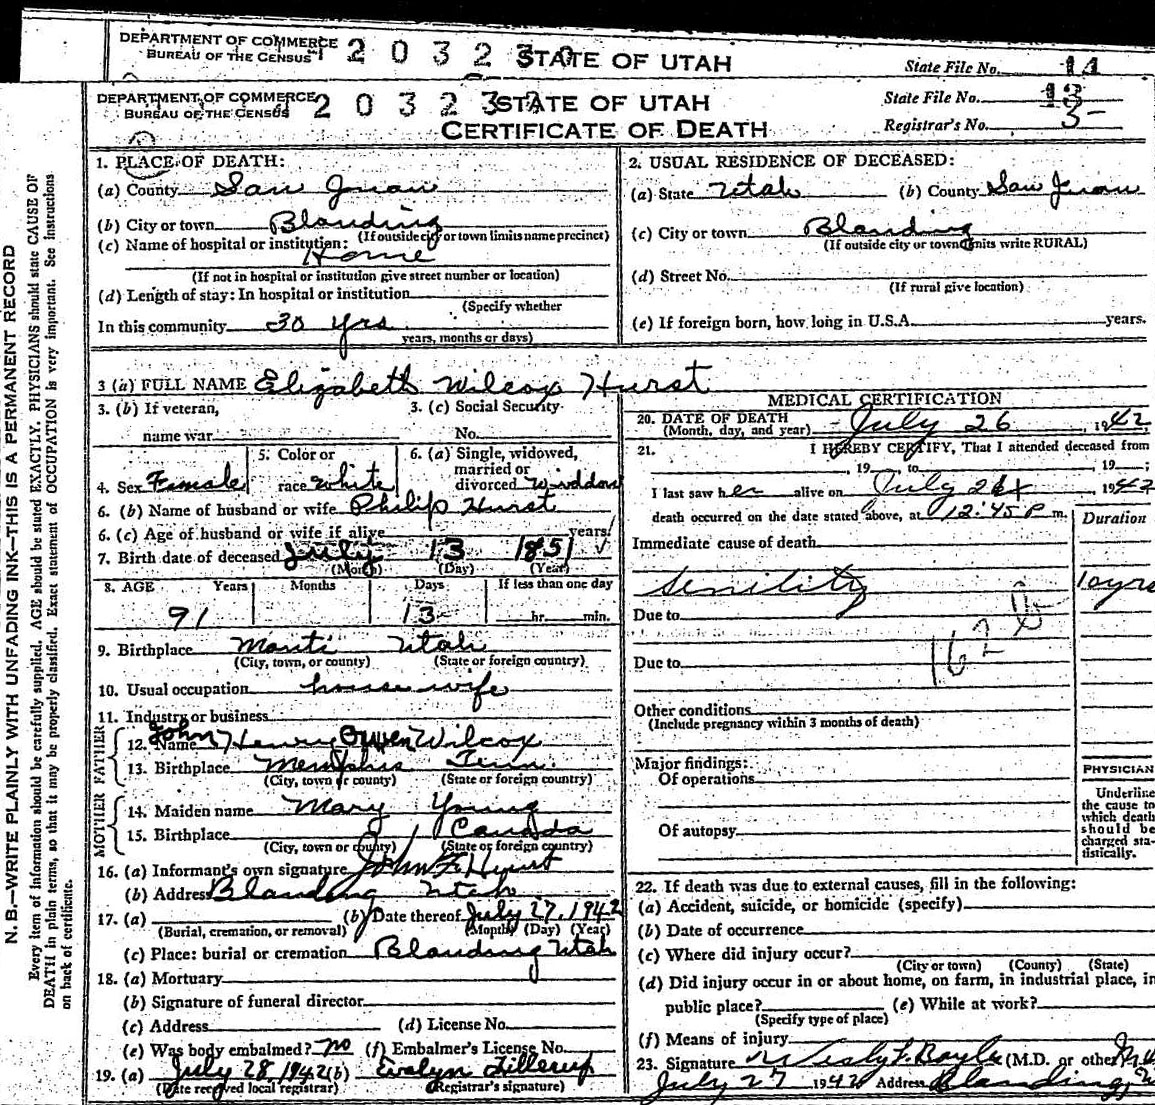 DEPARTMENT OF COMMERCE
BUREAU OF THE CENSUS
STATE OF UTAH
State File No. 14
DEPARTMENT OF COMMERCE
BUREAU OF THE CENSUS
2 0 3 2 3
STATE OF UTAH
State File No. 13
CERTIFICATE OF DEATH
Registrar's No. 3
N. B.—WRITE PLAINLY WITH UNFADING INK—THIS IS A PERMANENT RECORD
Every item of information should be carefully supplied. AGE should be stated EXACTLY. PHYSICIANS should state CAUSE OF
DEATH in plain terms, so that it may be properly classified. Exact statement of OCCUPATION is very important. See instructions
on back of certificate.
1. PLACE OF DEATH:
(a) County San Juan
(b) City or town Blanding
(If outside city or town limits name precinct)
(c) Name of hospital or institution:
Home
(If not in hospital or institution give street number or location)
(d) Length of stay: In hospital or institution
(Specify whether
In this community 30 yrs
years, months or days)
2. USUAL RESIDENCE OF DECEASED:
(a) State Utah (b) County San Juan
(c) City or town Blanding
(If outside city or town limits write RURAL)
(d) Street No.
(If rural give location)
(e) If foreign born, how long in U.S.A. years.
3 (a) FULL NAME Elizabeth Wilcox Hurst
3. (b) If veteran,
name war
3. (c) Social Security
No.
4. Sex Female
5. Color or
race white
6. (a) Single, widowed,
married or
divorced Widdow
6. (b) Name of husband or wife Philip Hurst
6. (c) Age of husband or wife if alive years
7. Birth date of deceased July 13 1851
(Month) (Day) (Year)
8. AGE Years Months Days If less than one day
91 13 hr. min.
9. Birthplace Manti Utah
(City, town, or county) (State or foreign country)
10. Usual occupation house wife
11. Industry or business
FATHER
12. Name John Henry Owen Wilcox
13. Birthplace Memphis Tenn.
(City, town or county) (State or foreign country)
MOTHER
14. Maiden name Mary Young
15. Birthplace Canada
(City, town or county) (State or foreign country)
16. (a) Informant's own signature John F. Hurst
(b) Address Blanding Utah
17. (a) (b) Date thereof July 27, 1942
(Burial, cremation, or removal) (Month) (Day) (Year)
(c) Place: burial or cremation Blanding Utah
18. (a) Mortuary
(b) Signature of funeral director
(c) Address (d) License No.
(e) Was body embalmed? no (f) Embalmer's License No.
19. (a) July 28 1942 (b) Evelyn
(Date received local registrar) (Registrar's signature)
MEDICAL CERTIFICATION
20. DATE OF DEATH
(Month, day, and year) July 26, 1942
21. I HEREBY CERTIFY, That I attended deceased from
, 19 to , 19 ;
I last saw her alive on July 26 1942
death occurred on the date stated above, at 12:45 P m.
Duration
Immediate cause of death
Senility 10 yrs
Due to
162 b
Due to
Other conditions
(Include pregnancy within 3 months of death)
Major findings:
Of operations
Of autopsy
PHYSICIAN
Underline
the cause to
which death
should be
charged sta-
tistically.
22. If death was due to external causes, fill in the following:
(a) Accident, suicide, or homicide (specify)
(b) Date of occurrence
(c) Where did injury occur?
(City or town) (County) (State)
(d) Did injury occur in or about home, on farm, in industrial place, in
public place? (e) While at work?
(Specify type of place)
(f) Means of injury
23. Signature (M.D. or other)
July 27 1942 Address Blanding,